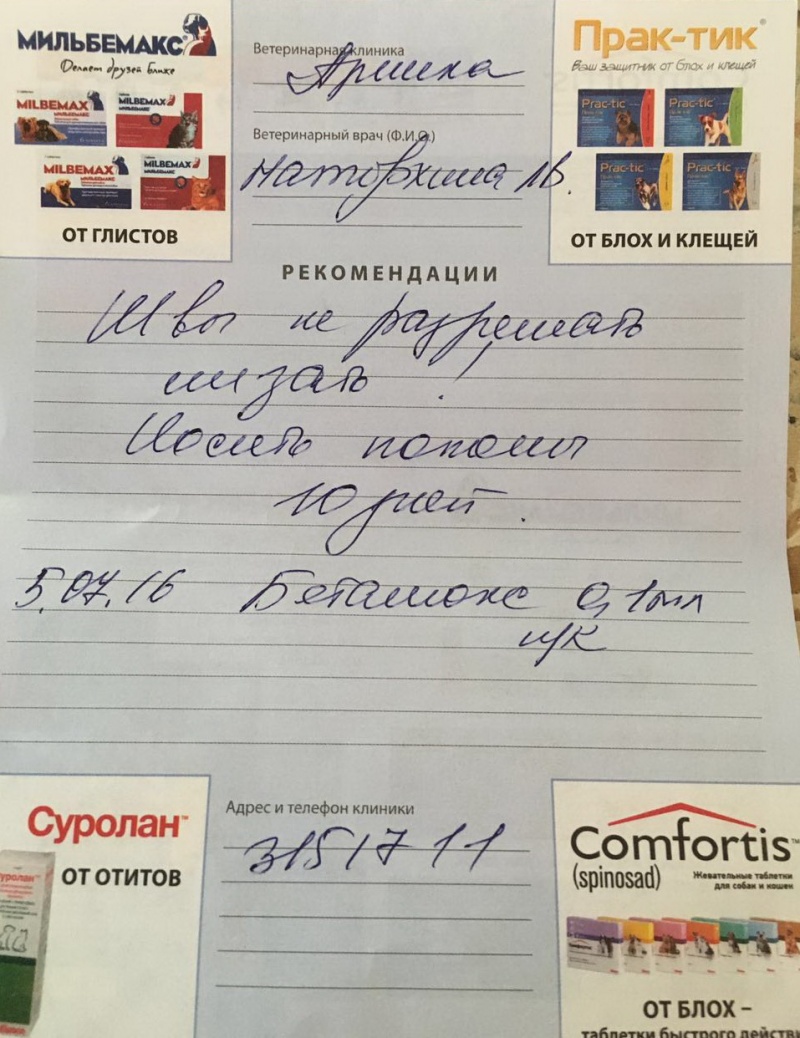 МИЛЬБЕМАКС®
Делает друзей ближе
MILBEMAX
МИЛЬБЕМАКС
MILBEMAX
МИЛЬБЕМАКС
MILBEMAX
МИЛЬБЕМАКС
MILBEMAX
МИЛЬБЕМАКС
ОТ ГЛИСТОВ
Ветеринарная клиника
Ветеринарный врач (Ф.И.О.)
Прак-тик®
Ваш защитник от блох и клещей
Prac-tic
Prac-tic
Prac-tic
Prac-tic
ОТ БЛОХ И КЛЕЩЕЙ
РЕКОМЕНДАЦИИ
Швы не разрешать
лизать!
Носить попоны
10 дней.
5.07.16 Бетамокс 0,1мл
п/к
Суролан™
уролан™
ОТ ОТИТОВ
Адрес и телефон клиники
3151711
Comfortis™
(spinosad)
Жевательные таблетки
для собак и кошек
ОТ БЛОХ –
таблетки быстрого действи